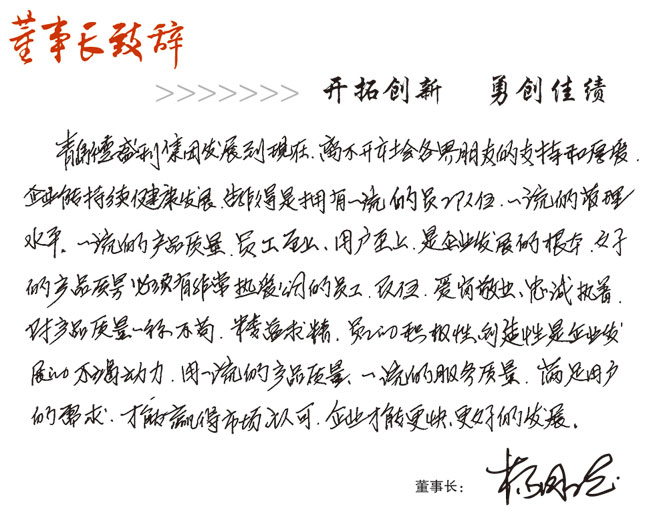 董事长致辞
>>>>>>> 开拓创新 勇创佳绩
青岛德盛利集团发展到现在、离不开社会各界朋友的支持和厚爱、
企业能持续健康发展、得是拥有一流的员工队伍、一流的管理
水平、一流的产品质量、员工至上、用户至上、是企业发展的根本、好
的产品质量必须有非常热爱公司的员工队伍、爱岗敬业、忠诚执着、
对产品质量一丝不苟、精益求精、员工的积极性、创造性是企业发
展的不竭动力、用一流的产品质量、一流的服务质量、满足用户
的需求、才能赢得市场认可、企业才能更快、更好的发展。
董事长：